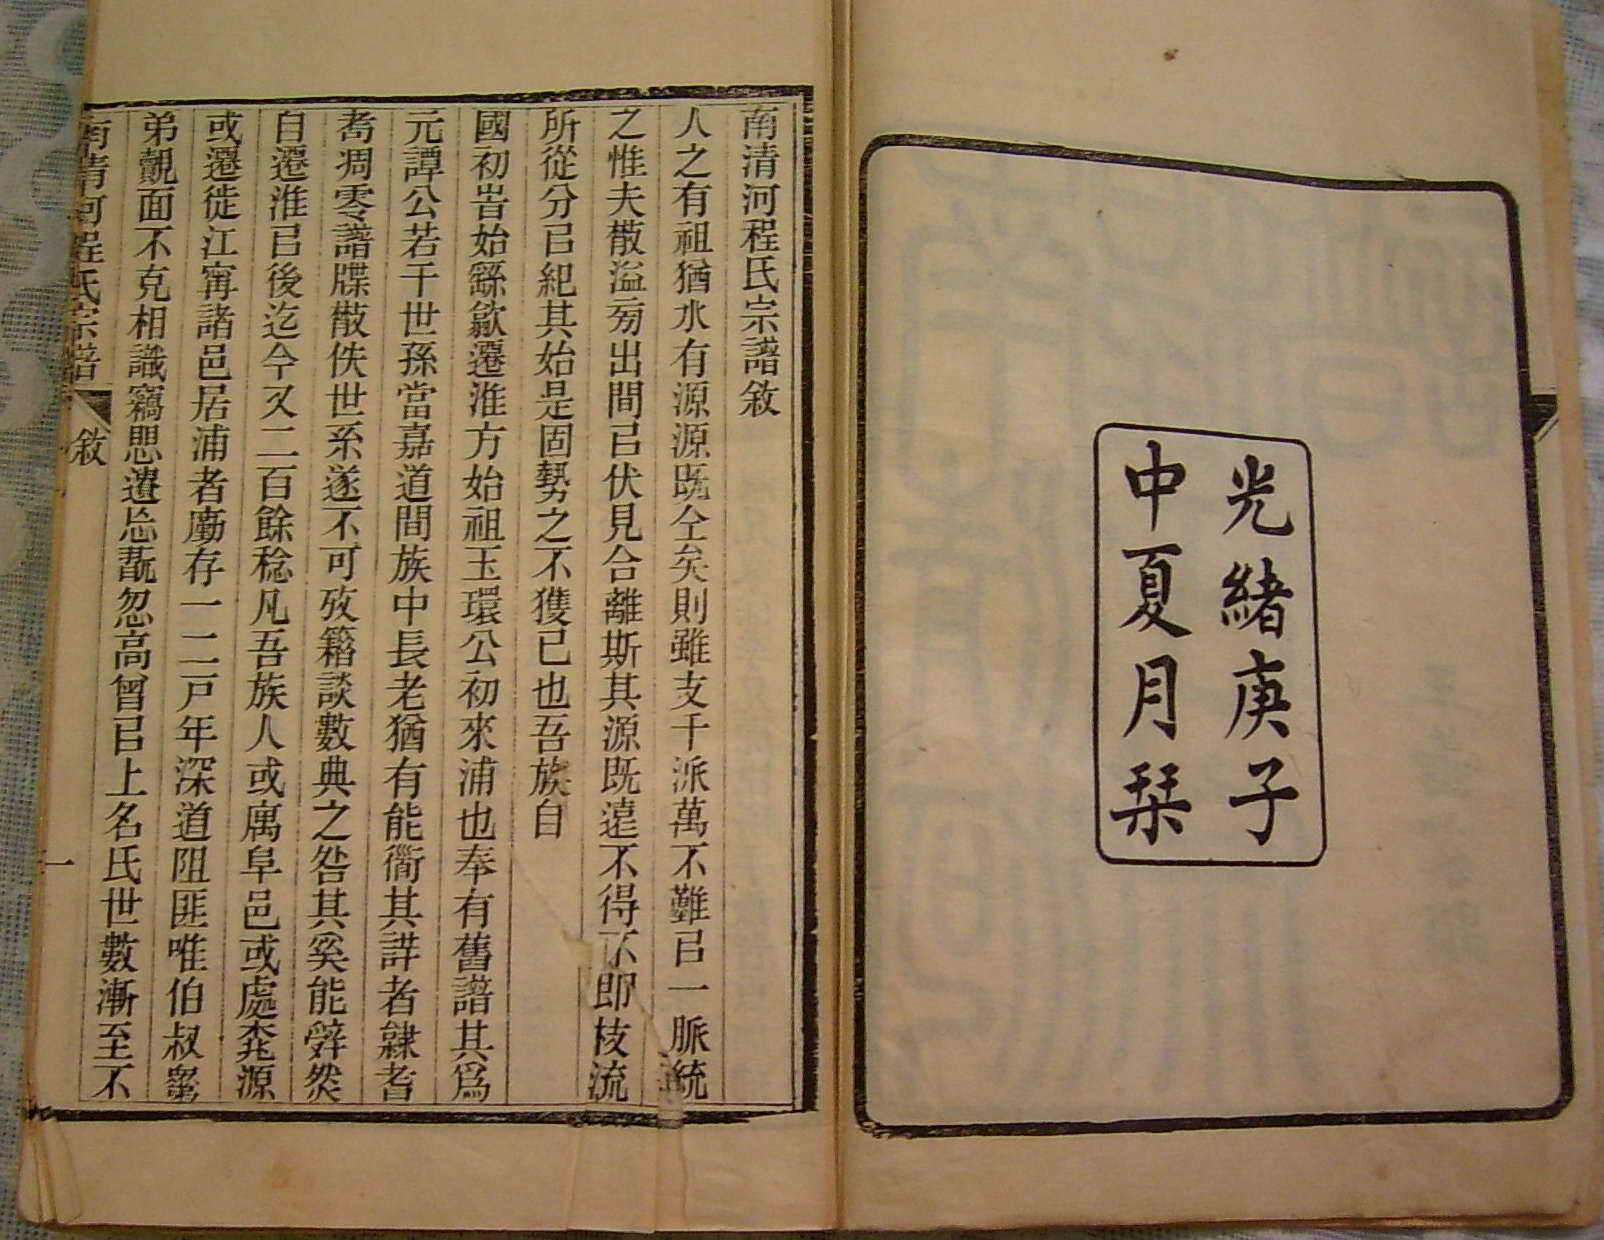 光緒庚子
中夏月栞
南清河程氏宗譜敘
人之有祖猶水有源源既仝矣則雖支千派萬不難㠯一脈統
之惟夫散溢旁出間㠯伏見合離斯其源既遠不得不即枝流
所從分㠯紀其始是固勢之不獲已也吾族自
國初旹始繇歙遷淮方始祖玉環公初來浦也奉有舊譜其爲
元譚公若干世孫當嘉道間族中長老猶有能衟其詳者隸者
耇凋零譜牒散佚世系遂不可攷籍談數典之咎其奚能辭然
自遷淮㠯後迄今又二百餘稔凡吾族人或寓阜邑或處桃源
或遷徙江甯諸邑居浦者廑存一二戸年深道阻匪唯伯叔
弟覿面不克相識竊思遺忘翫忽高曾㠯上名氏世數漸至不
南清河程氏宗譜
敘
一